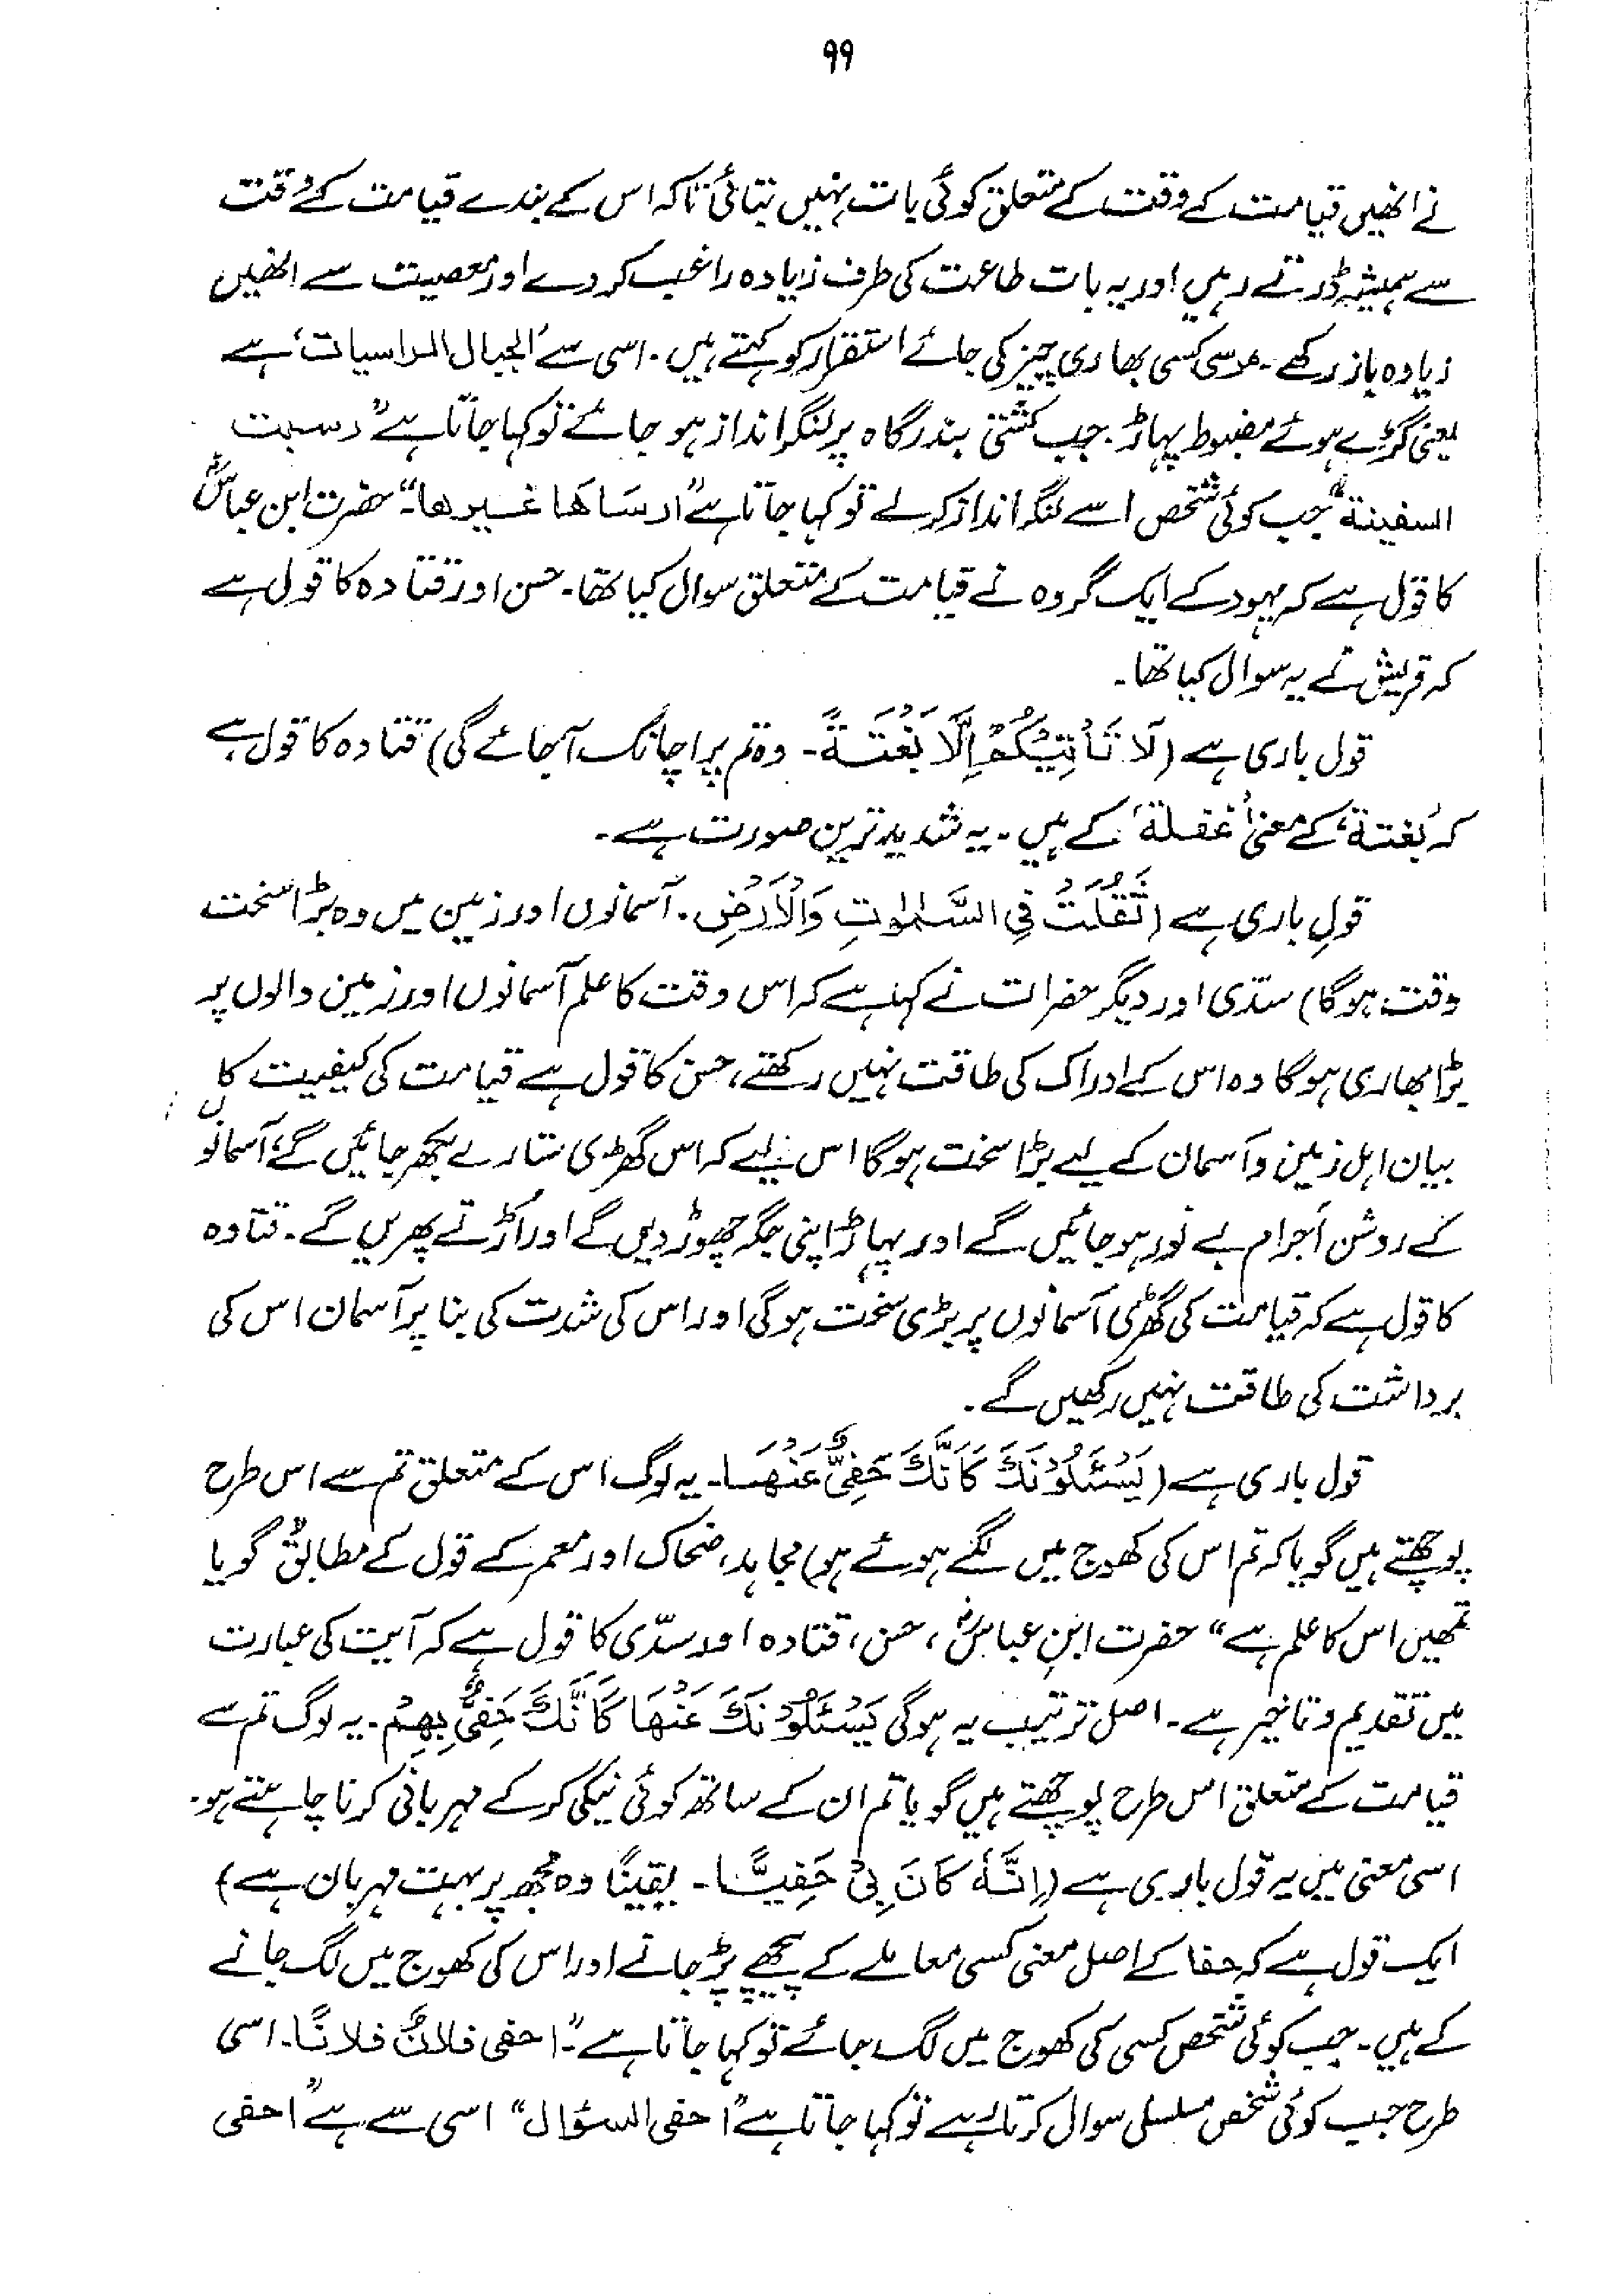 ۹۹
نے انھیں قیامت کے وقت کے متعلق کوئی بات نہیں بتائی تاکہ اس کے بندے قیامت کے وقت
سے ہمیشہ ڈرتے رہیں اور یہ بات طاعت کی طرف زیادہ راغب کر دے اور معصیت سے انھیں
زیادہ باز رکھے۔ مرسی کسی بھاری چیز کی جائے استقرار کو کہتے ہیں۔ اسی سے 'الجبال الراسیات' ہے
یعنی گڑے ہوئے مضبوط پہاڑ۔ جب کشتی بندرگاہ پر لنگر انداز ہو جائے تو کہا جاتا ہے "رسبت
السفینۃ" جب کوئی شخص اسے لنگر انداز کرلے تو کہا جاتا ہے "ارسَاھَا غیرھا"۔ حضرت ابن عباسؓ
کا قول ہے کہ یہود کے ایک گروہ نے قیامت کے متعلق سوال کیا تھا۔ حسن اور قتادہ کا قول ہے
کہ قریش نے یہ سوال کیا تھا۔
قول باری ہے (لَا تَأْتِیْکُمْ اِلَّا بَغْتَۃً۔ وہ تم پر اچانک آ جائے گی) قتادہ کا قول ہے
کہ 'بغتۃ' کے معنی 'غفلۃ' کے ہیں۔ یہ شدید ترین صورت ہے۔
قولِ باری ہے (ثَقُلَتْ فِی السَّمٰوٰتِ وَالْاَرْضِ۔ آسمانوں اور زمین میں وہ بڑا سخت
وقت ہوگا) سدّی اور دیگر حضرات نے کہا ہے کہ اس وقت کا علم آسمانوں اور زمین والوں پر
بڑا بھاری ہوگا وہ اس کے ادراک کی طاقت نہیں رکھتے، حسن کا قول ہے قیامت کی کیفیت کا
بیان اہل زمین و آسمان کے لیے بڑا سخت ہوگا اس لیے کہ اس گھڑی ستارے بکھر جائیں گے، آسمانوں
کے روشن اَجرام بے نور ہو جائیں گے اور پہاڑ اپنی جگہ چھوڑ دیں گے اور اُڑتے پھریں گے۔ قتادہ
کا قول ہے کہ قیامت کی گھڑی آسمانوں پر بڑی سخت ہوگی اور اس کی شدت کی بنا پر آسمان اس کی
برداشت کی طاقت نہیں رکھیں گے۔
قول باری ہے (یَسْئَلُوْنَکَ کَاَنَّکَ حَفِیٌّ عَنْھَا۔ یہ لوگ اس کے متعلق تم سے اس طرح
پوچھتے ہیں گویا کہ تم اس کی کھوج میں لگے ہوئے ہو) مجاہد، ضحاک اور معمر کے قول کے مطابق "گویا
تمھیں اس کا علم ہے" حضرت ابنِ عباسؓ، حسن، قتادہ اور سدّی کا قول ہے کہ آیت کی عبارت
میں تقدیم و تاخیر ہے۔ اصل ترتیب یہ ہوگی یَسْئَلُوْنَکَ عَنْھَا کَاَنَّکَ حَفِیٌّ بِھِمْ۔ یہ لوگ تم سے
قیامت کے متعلق اس طرح پوچھتے ہیں گویا تم ان کے ساتھ کوئی نیکی کر کے مہربانی کرنا چاہتے ہو۔
اسی معنی میں یہ قول باری ہے (اِنَّہٗ کَانَ بِیْ حَفِیًّا۔ یقینًا وہ مجھ پر بہت مہربان ہے)
ایک قول ہے کہ حفا کے اصل معنی کسی معاملے کے پیچھے پڑ جانے اور اس کی کھوج میں لگ جانے
کے ہیں۔ جب کوئی شخص کسی کی کھوج میں لگ جائے تو کہا جاتا ہے۔ "احفی فلانٌ فلانًا۔ اسی
طرح جب کوئی شخص مسلسل سوال کرتا ہے تو کہا جاتا ہے "احفی السؤال" اسی سے ہے "احفی